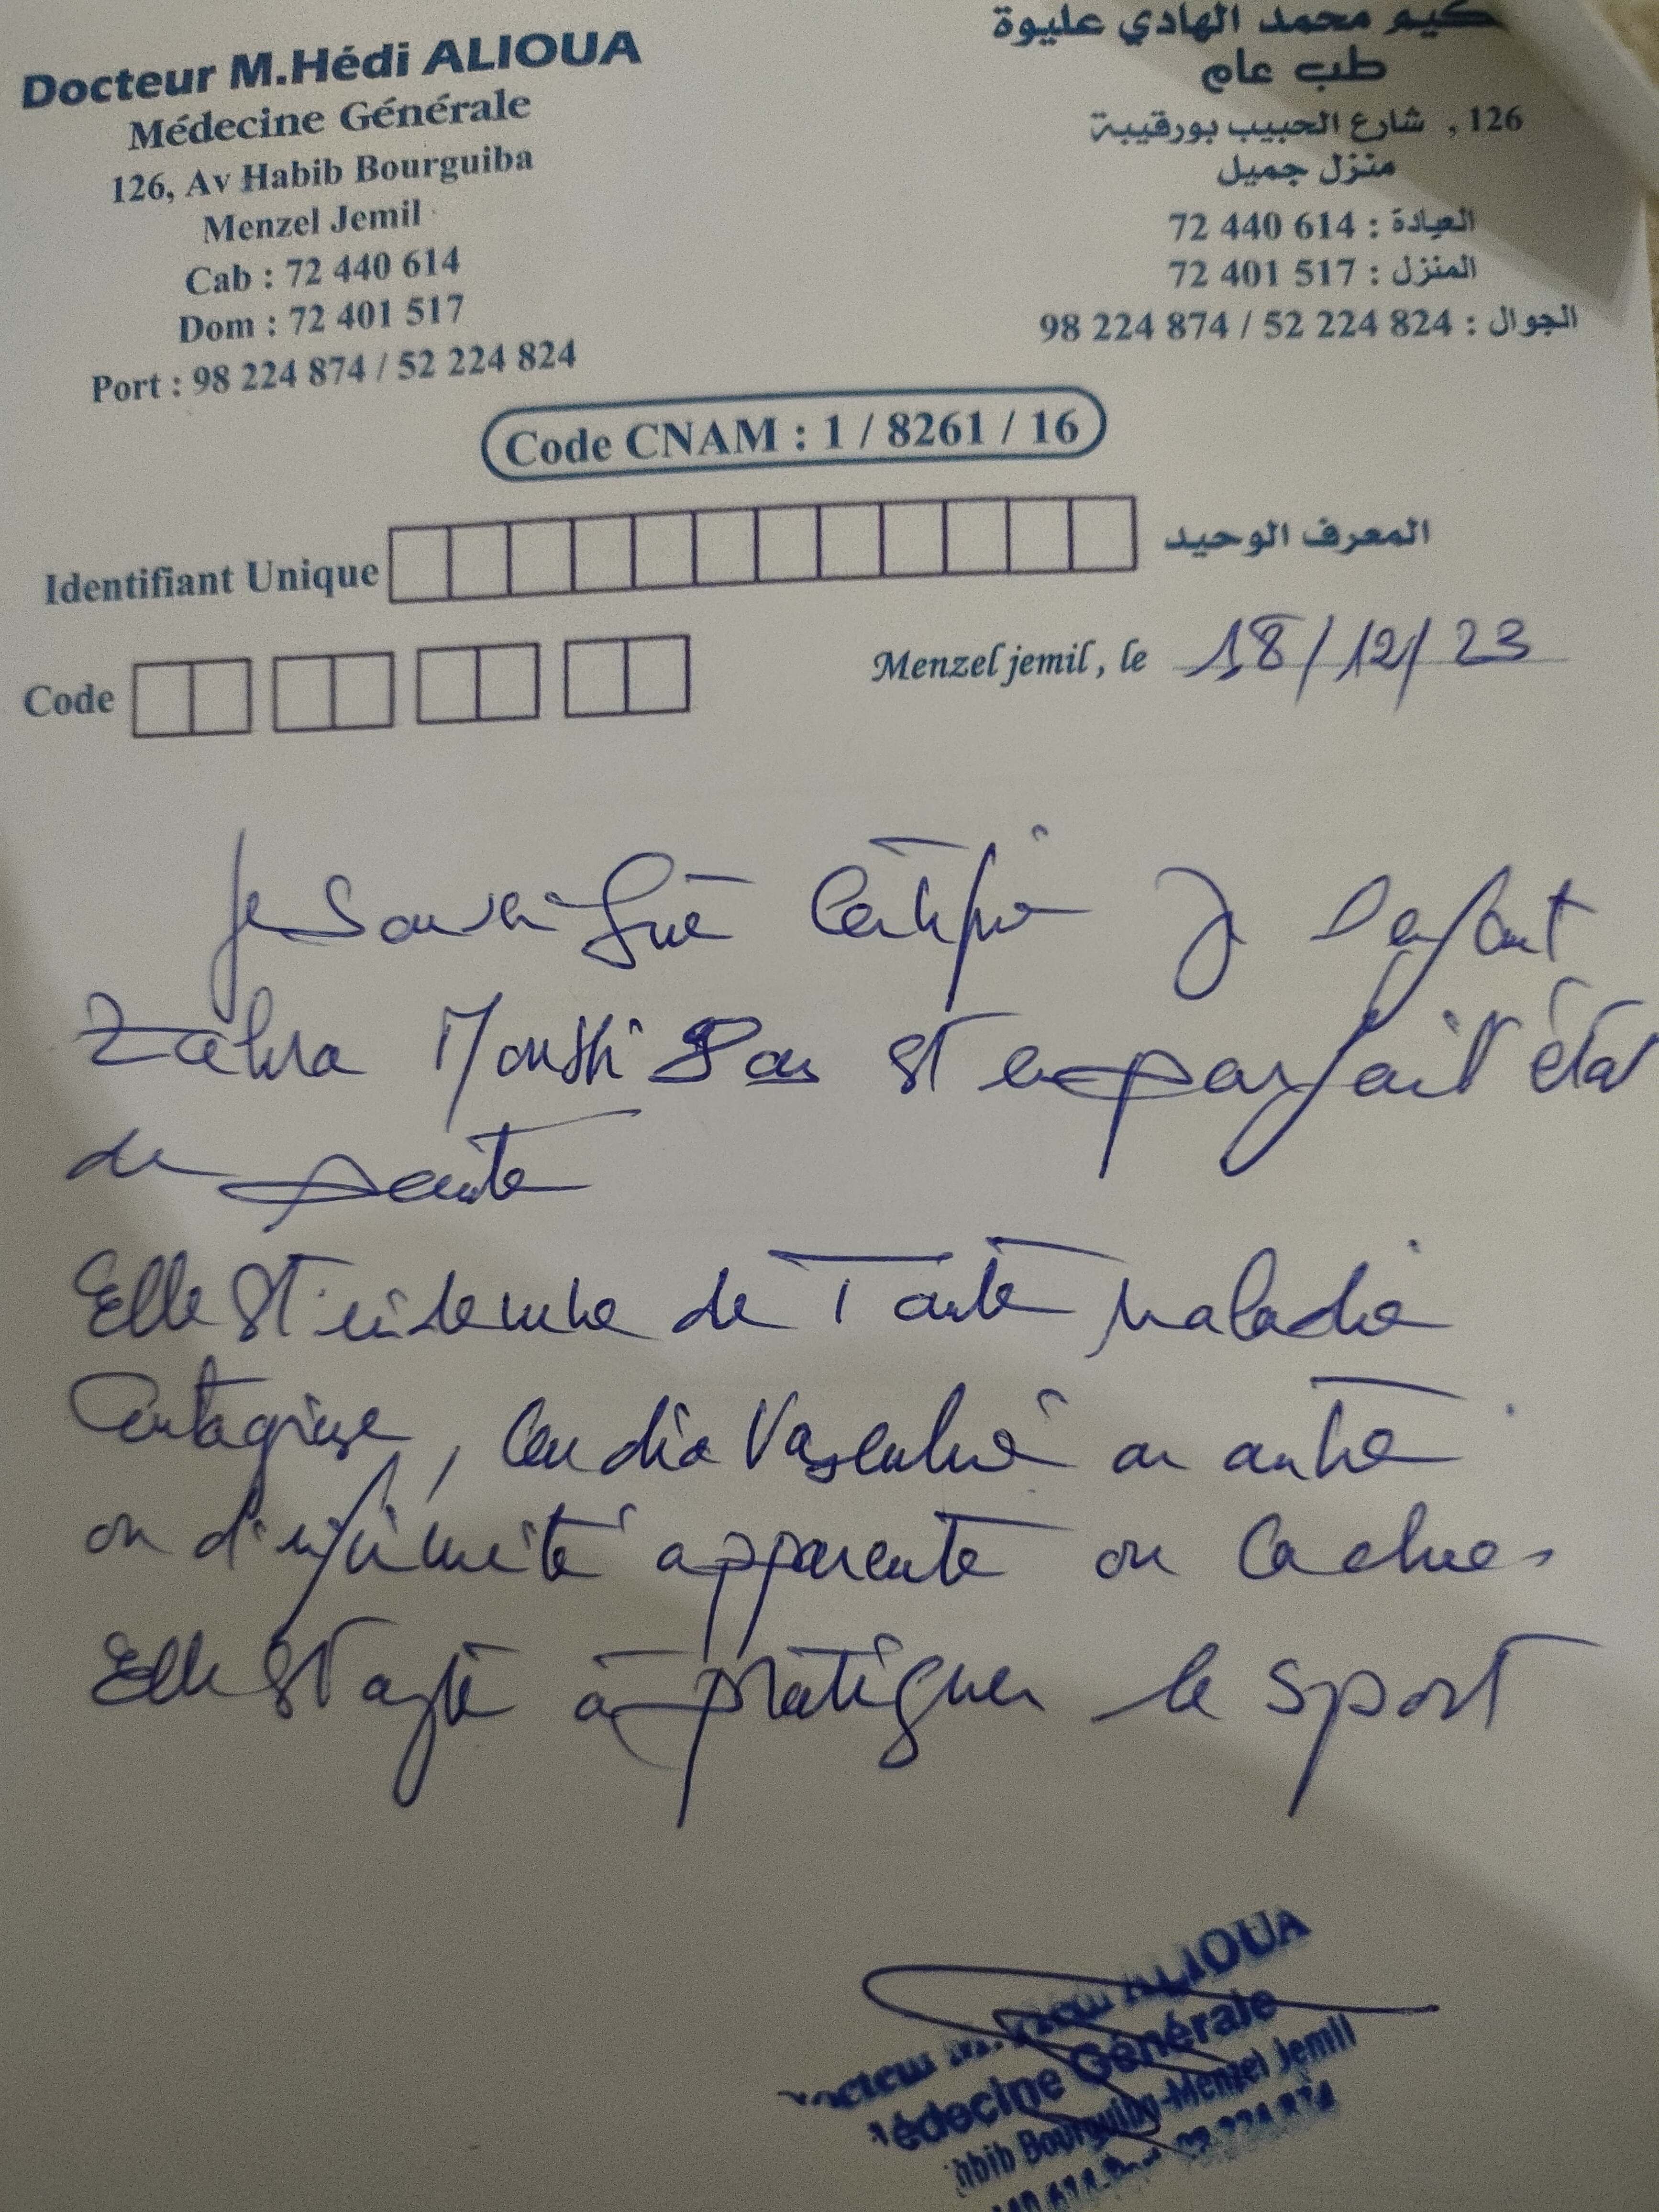 Docteur M.Hédi ALIOUA
Médecine Générale
126, Av Habib Bourguiba
Menzel Jemil
Cab : 72 440 614
Dom : 72 401 517
Port : 98 224 874 / 52 224 824
كيم محمد الهادي عليوة
طب عام
126 , شارع الحبيب بورقيبة
منزل جميل
العيادة : 72 440 614
المنزل : 72 401 517
الجوال : 98 224 874 / 52 224 824
Code CNAM : 1 / 8261 / 16
Identifiant Unique المعرف الوحيد
Code
Menzel jemil , le 18/12/23
Je soussigné certifie l'enfant
Zahra est en parfait état
de santé
Elle est indemne de toute maladie
contagieuse, cardio vasculaire ou autre
ou d'infirmité apparente ou cachée.
Elle est apte à pratiquer le sport
ALIOUA
Médecine Générale
Habib Bourguiba-Menzel Jemil